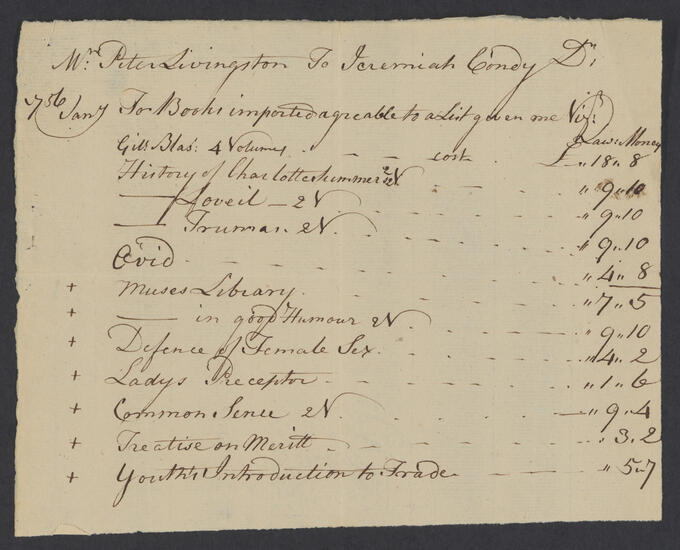 Mr. Peter Livingston To Jeremiah Condy Dr.
1756 Jany To Books imported agreable to a List given me Vizt.
Lawl. Money
Gill Blas: 4 Volumes - - - cost - £ " 18 " 8
History of Charlotte Summer 2 V. - - - " 9 " 10
—— Loveil — 2 V - - - - " 9 " 10
—— Truman. 2 V. - - - - " 9 " 10
Ovid - - - - - " 4 " 8
+ Muses Library. - - - - " 7 " 5
+ —— in good Humour 2 V. - - - - " 9 " 10
+ Defence of Female Sex. - - - - " 4 " 2
+ Ladys Preceptor - - - - " 1 " 6
+ Common Sence 2 V. - - - - " 9 " 4
+ Treatise on Meritt. - - - - : 3 " 2
+ Youth's Introduction to Trade - - - - " 5 " 7